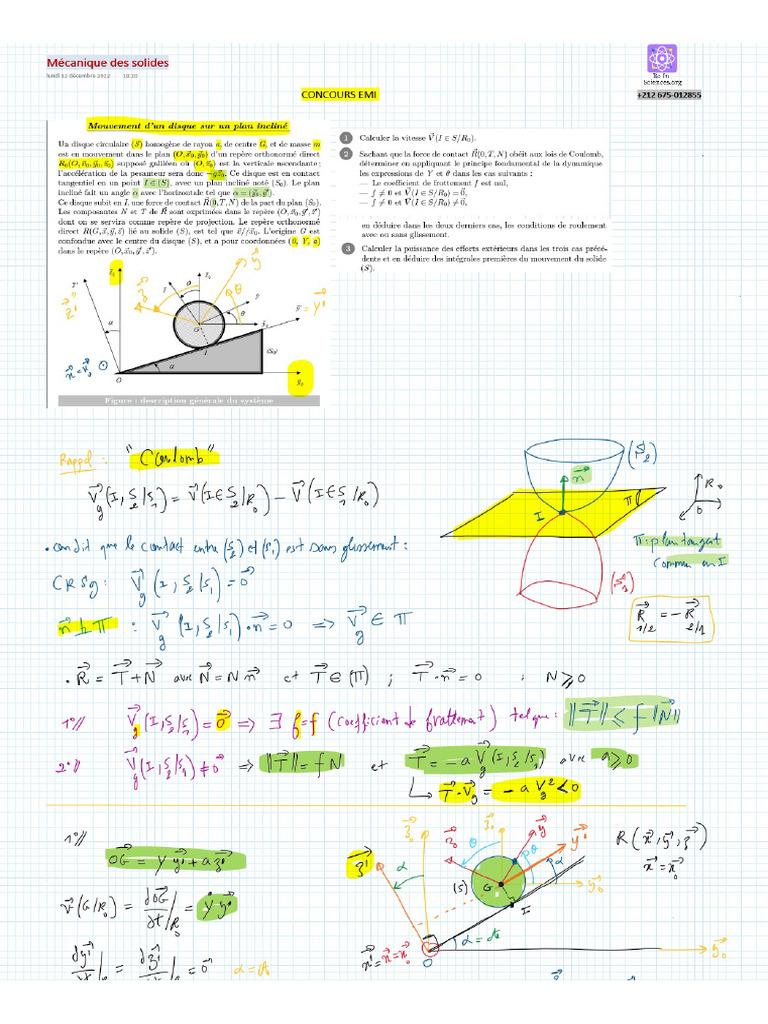 Mécanique des solides
lundi 12 décembre 2022 18:20
CONCOURS EMI
Be In
Sciences.org
+212 675-012855
Mouvement d'un disque sur un plan incliné
Un disque circulaire (S) homogène de rayon a, de centre G, et de masse m
est en mouvement dans le plan (O, x⃗₀, y⃗₀) d'un repère orthonormé direct
R₀(O, x⃗₀, y⃗₀, z⃗₀) supposé galiléen où (O, z⃗₀) est la verticale ascendante :
l'accélération de la pesanteur sera donc −gz⃗₀. Ce disque est en contact
tangentiel en un point I ∈ (S), avec un plan incliné noté (S₀). Le plan
incliné fait un angle α avec l'horizontale tel que α = (y⃗₀, y⃗').
Ce disque subit en I, une force de contact R⃗(0, T, N) de la part du plan (S₀).
Les composantes N et T de R⃗ sont exprimées dans le repère (O, x⃗₀, y⃗', z⃗')
dont on se servira comme repère de projection. Le repère orthonormé
direct R(G, x⃗, y⃗, z⃗) lié au solide (S), est tel que x⃗//x⃗₀. L'origine G est
confondue avec le centre du disque (S), et a pour coordonnées (0, Y, a)
dans le repère (O, x⃗₀, y⃗', z⃗').
1 Calculer la vitesse V⃗(I ∈ S/R₀).
2 Sachant que la force de contact R⃗(0, T, N) obéit aux lois de Coulomb,
déterminer en appliquant le principe fondamental de la dynamique
les expressions de Y et θ dans les cas suivants :
— Le coefficient de frottement f est nul,
— f ≠ 0 et V⃗(I ∈ S/R₀) = 0⃗,
— f ≠ 0 et V⃗(I ∈ S/R₀) ≠ 0⃗,
en déduire dans les deux derniers cas, les conditions de roulement
avec ou sans glissement.
3 Calculer la puissance des efforts extérieurs dans les trois cas précé-
dents et en déduire des intégrales premières du mouvement du solide
(S).
z⃗₀ z⃗' z⃗ θ y⃗ y⃗' G I α O (S₀) y⃗₀
x⃗ = x⃗₀
Figure : description générale du système
Rappel : "Coulomb"
V⃗g(I, S₂/S₁) = V⃗(I∈S₂/R₀) − V⃗(I∈S₁/R₀)
• condit que le contact entre (S₂) et (S₁) est sans glissement :
CRSg : V⃗g(I, S₂/S₁) = 0⃗
n⃗ ⊥ Π : V⃗g(I, S₂/S₁)·n⃗ = 0 ⟹ V⃗g ∈ Π
(S₂)
n⃗
I
Π
R₀
O
Π : plan tangent
commun en I
(S₁)
R⃗1/2 = −R⃗2/1
• R⃗ = T⃗ + N⃗ avec N⃗ = N n⃗ et T⃗ ∈ (Π) ; T⃗·n⃗ = 0 ; N ⩾ 0
1°// V⃗g(I, S₂/S₁) = 0⃗ ⟹ ∃ f = f (coefficient de frottement) tel que : ||T⃗|| ≤ f ||N⃗||
2°// V⃗g(I, S₂/S₁) ≠ 0⃗ ⟹ ||T⃗|| = f N et T⃗ = −a V⃗g(I, S₂/S₁) avec a ⩾ 0
↳ T⃗·V⃗g = −a Vg² < 0
1°//
OG⃗ = Y y⃗' + a z⃗'
V⃗(G/R₀) = dOG⃗/dt|R₀ = Ẏ y⃗'
dy⃗'/dt|R₀ = dz⃗'/dt|R₀ = 0⃗ α = cte
z⃗' z⃗₀ z⃗ z⃗₀ y⃗ y⃗' θ α (S) G I y⃗₀
R(x⃗, y⃗, z⃗)
x⃗ = x⃗₀
α = cte
x⃗' = x⃗ = x⃗₀ O y⃗₀